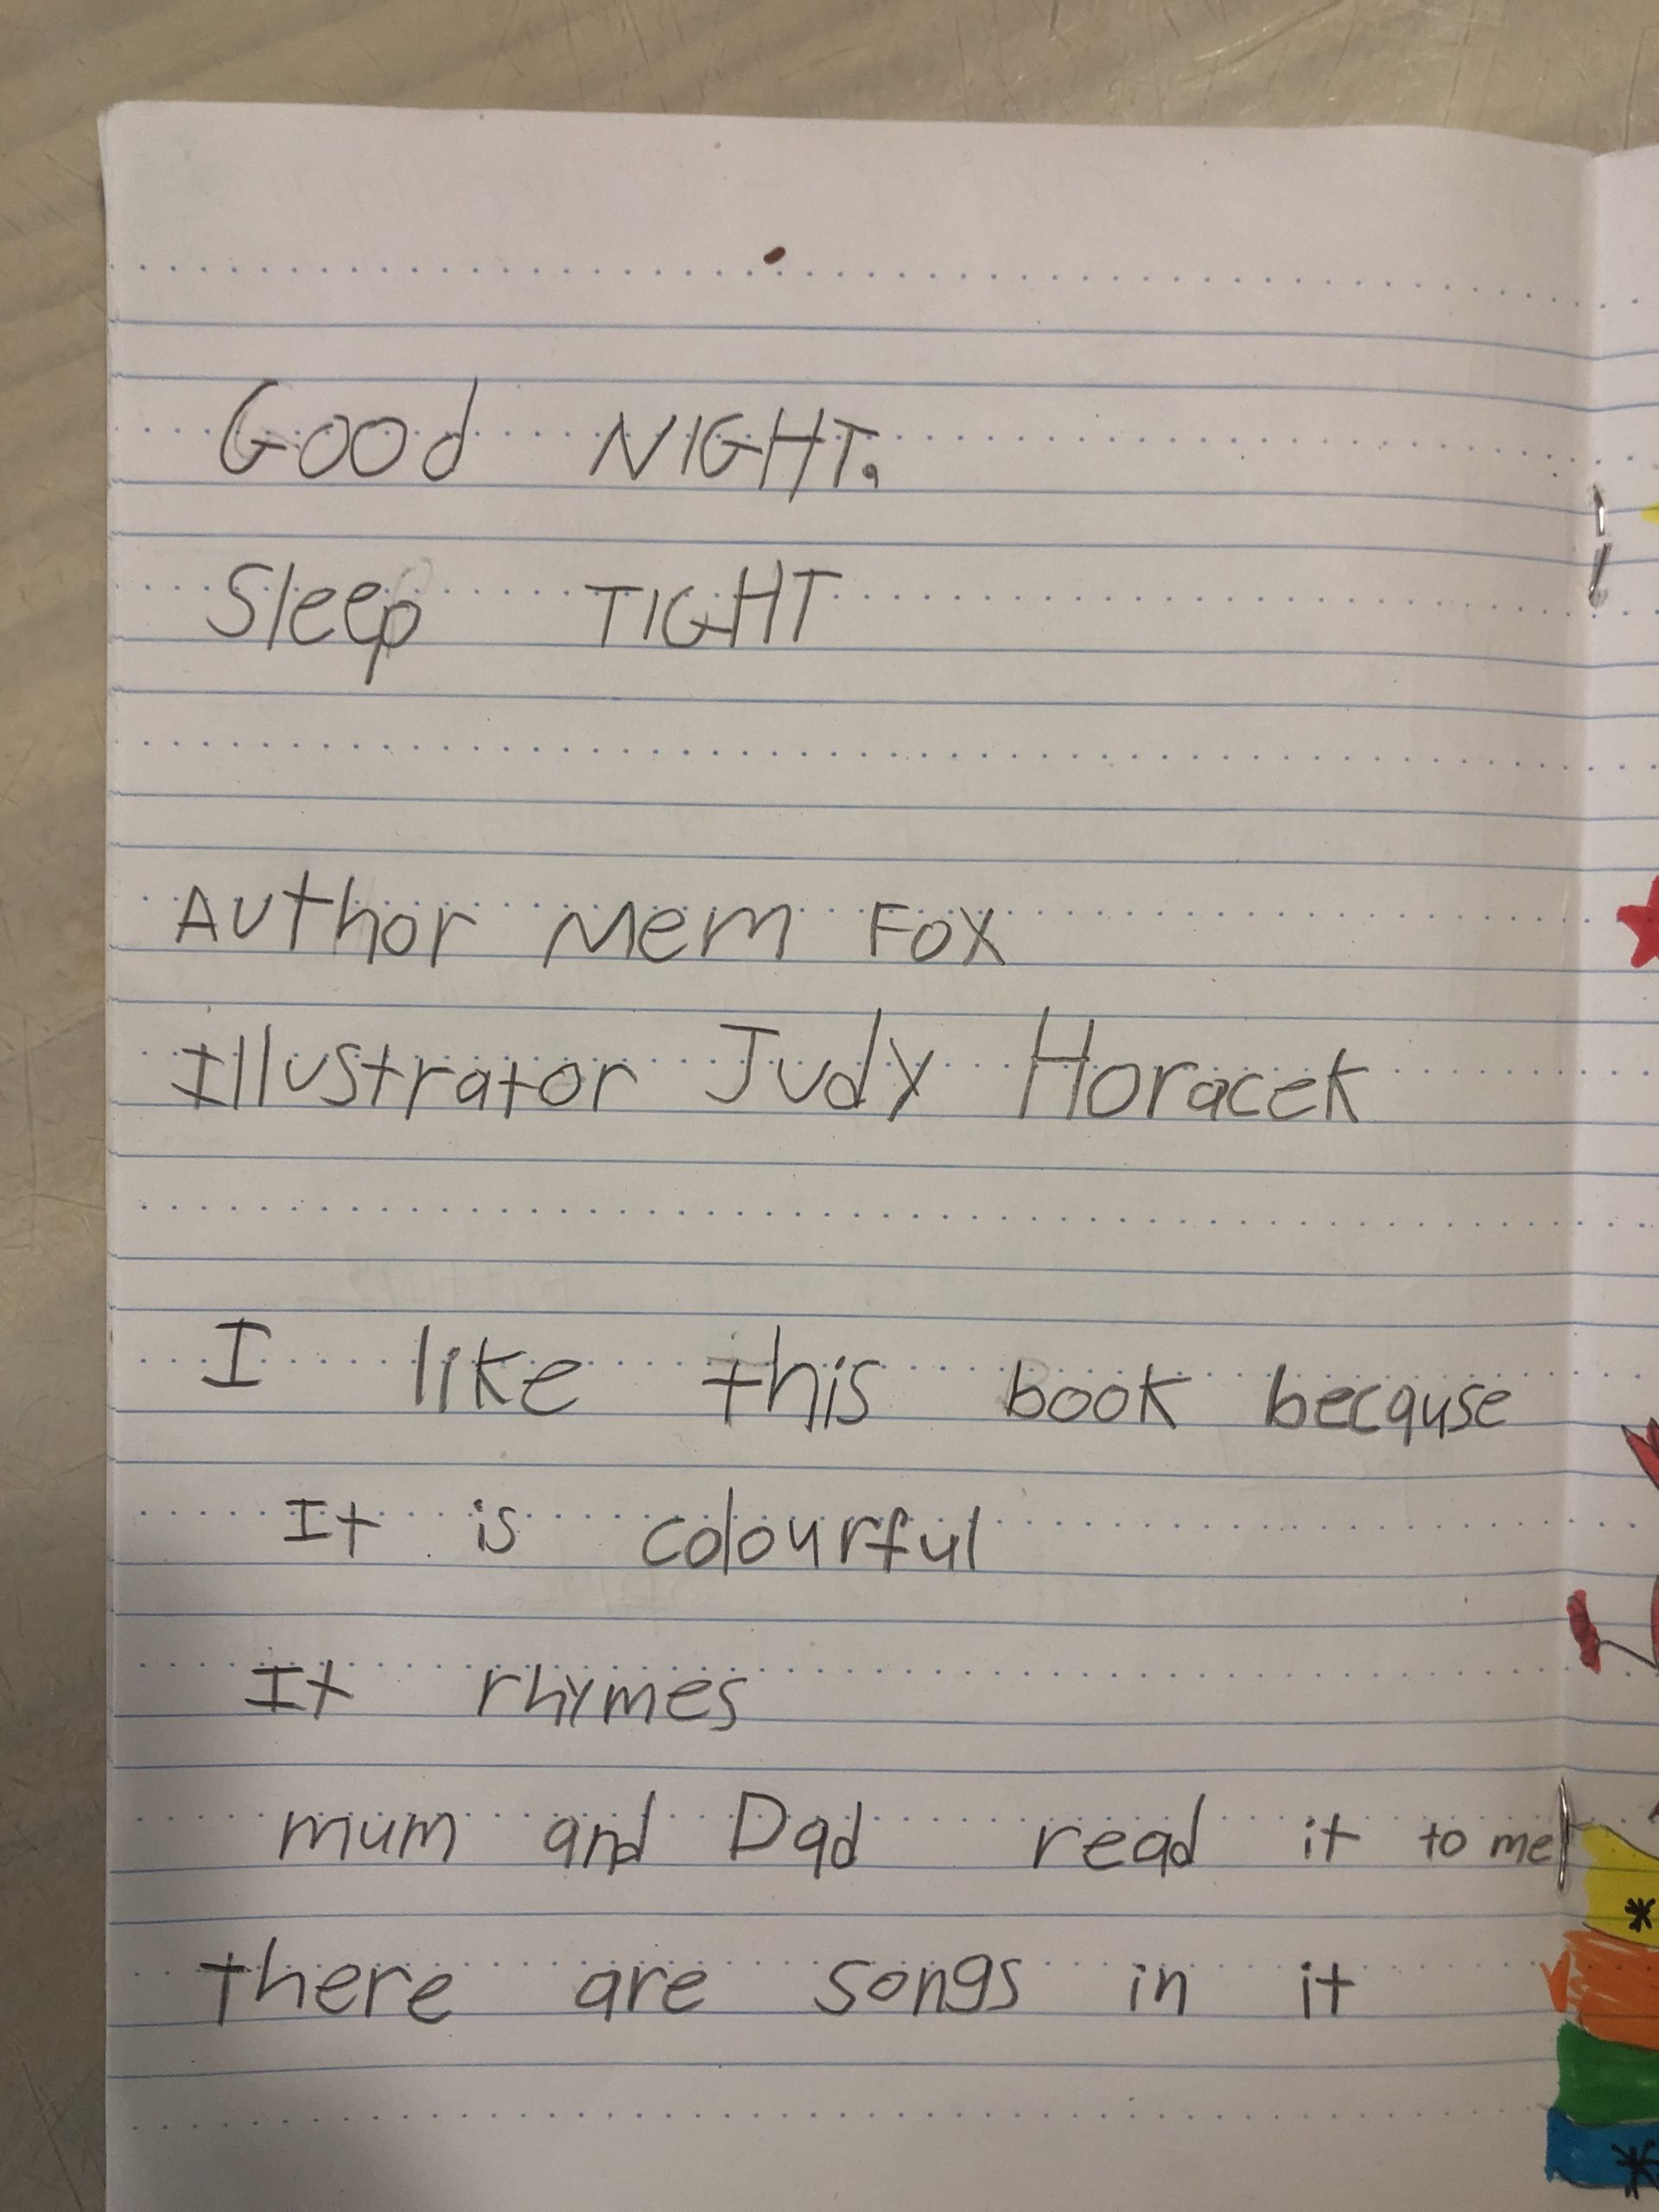 Good NIGHT,
Sleep TIGHT
Author Mem Fox
Illustrator Judy Horacek
I like this book because
It is colourful
It rhymes
mum and Dad read it to me
there are songs in it